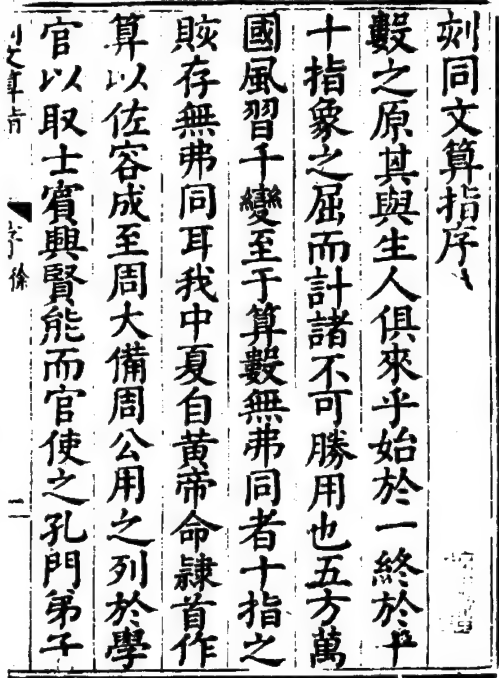 刻同文算指序
數之原其與生人俱來乎始於一終於十
十指象之屈而計諸不可勝用也五方萬
國風習千變至于算數無弗同者十指之
賅存無弗同耳我中夏自黄帝命隸首作
算以佐容成至周大備周公用之列於學
官以取士賓興賢能而官使之孔門弟子
序 徐 二